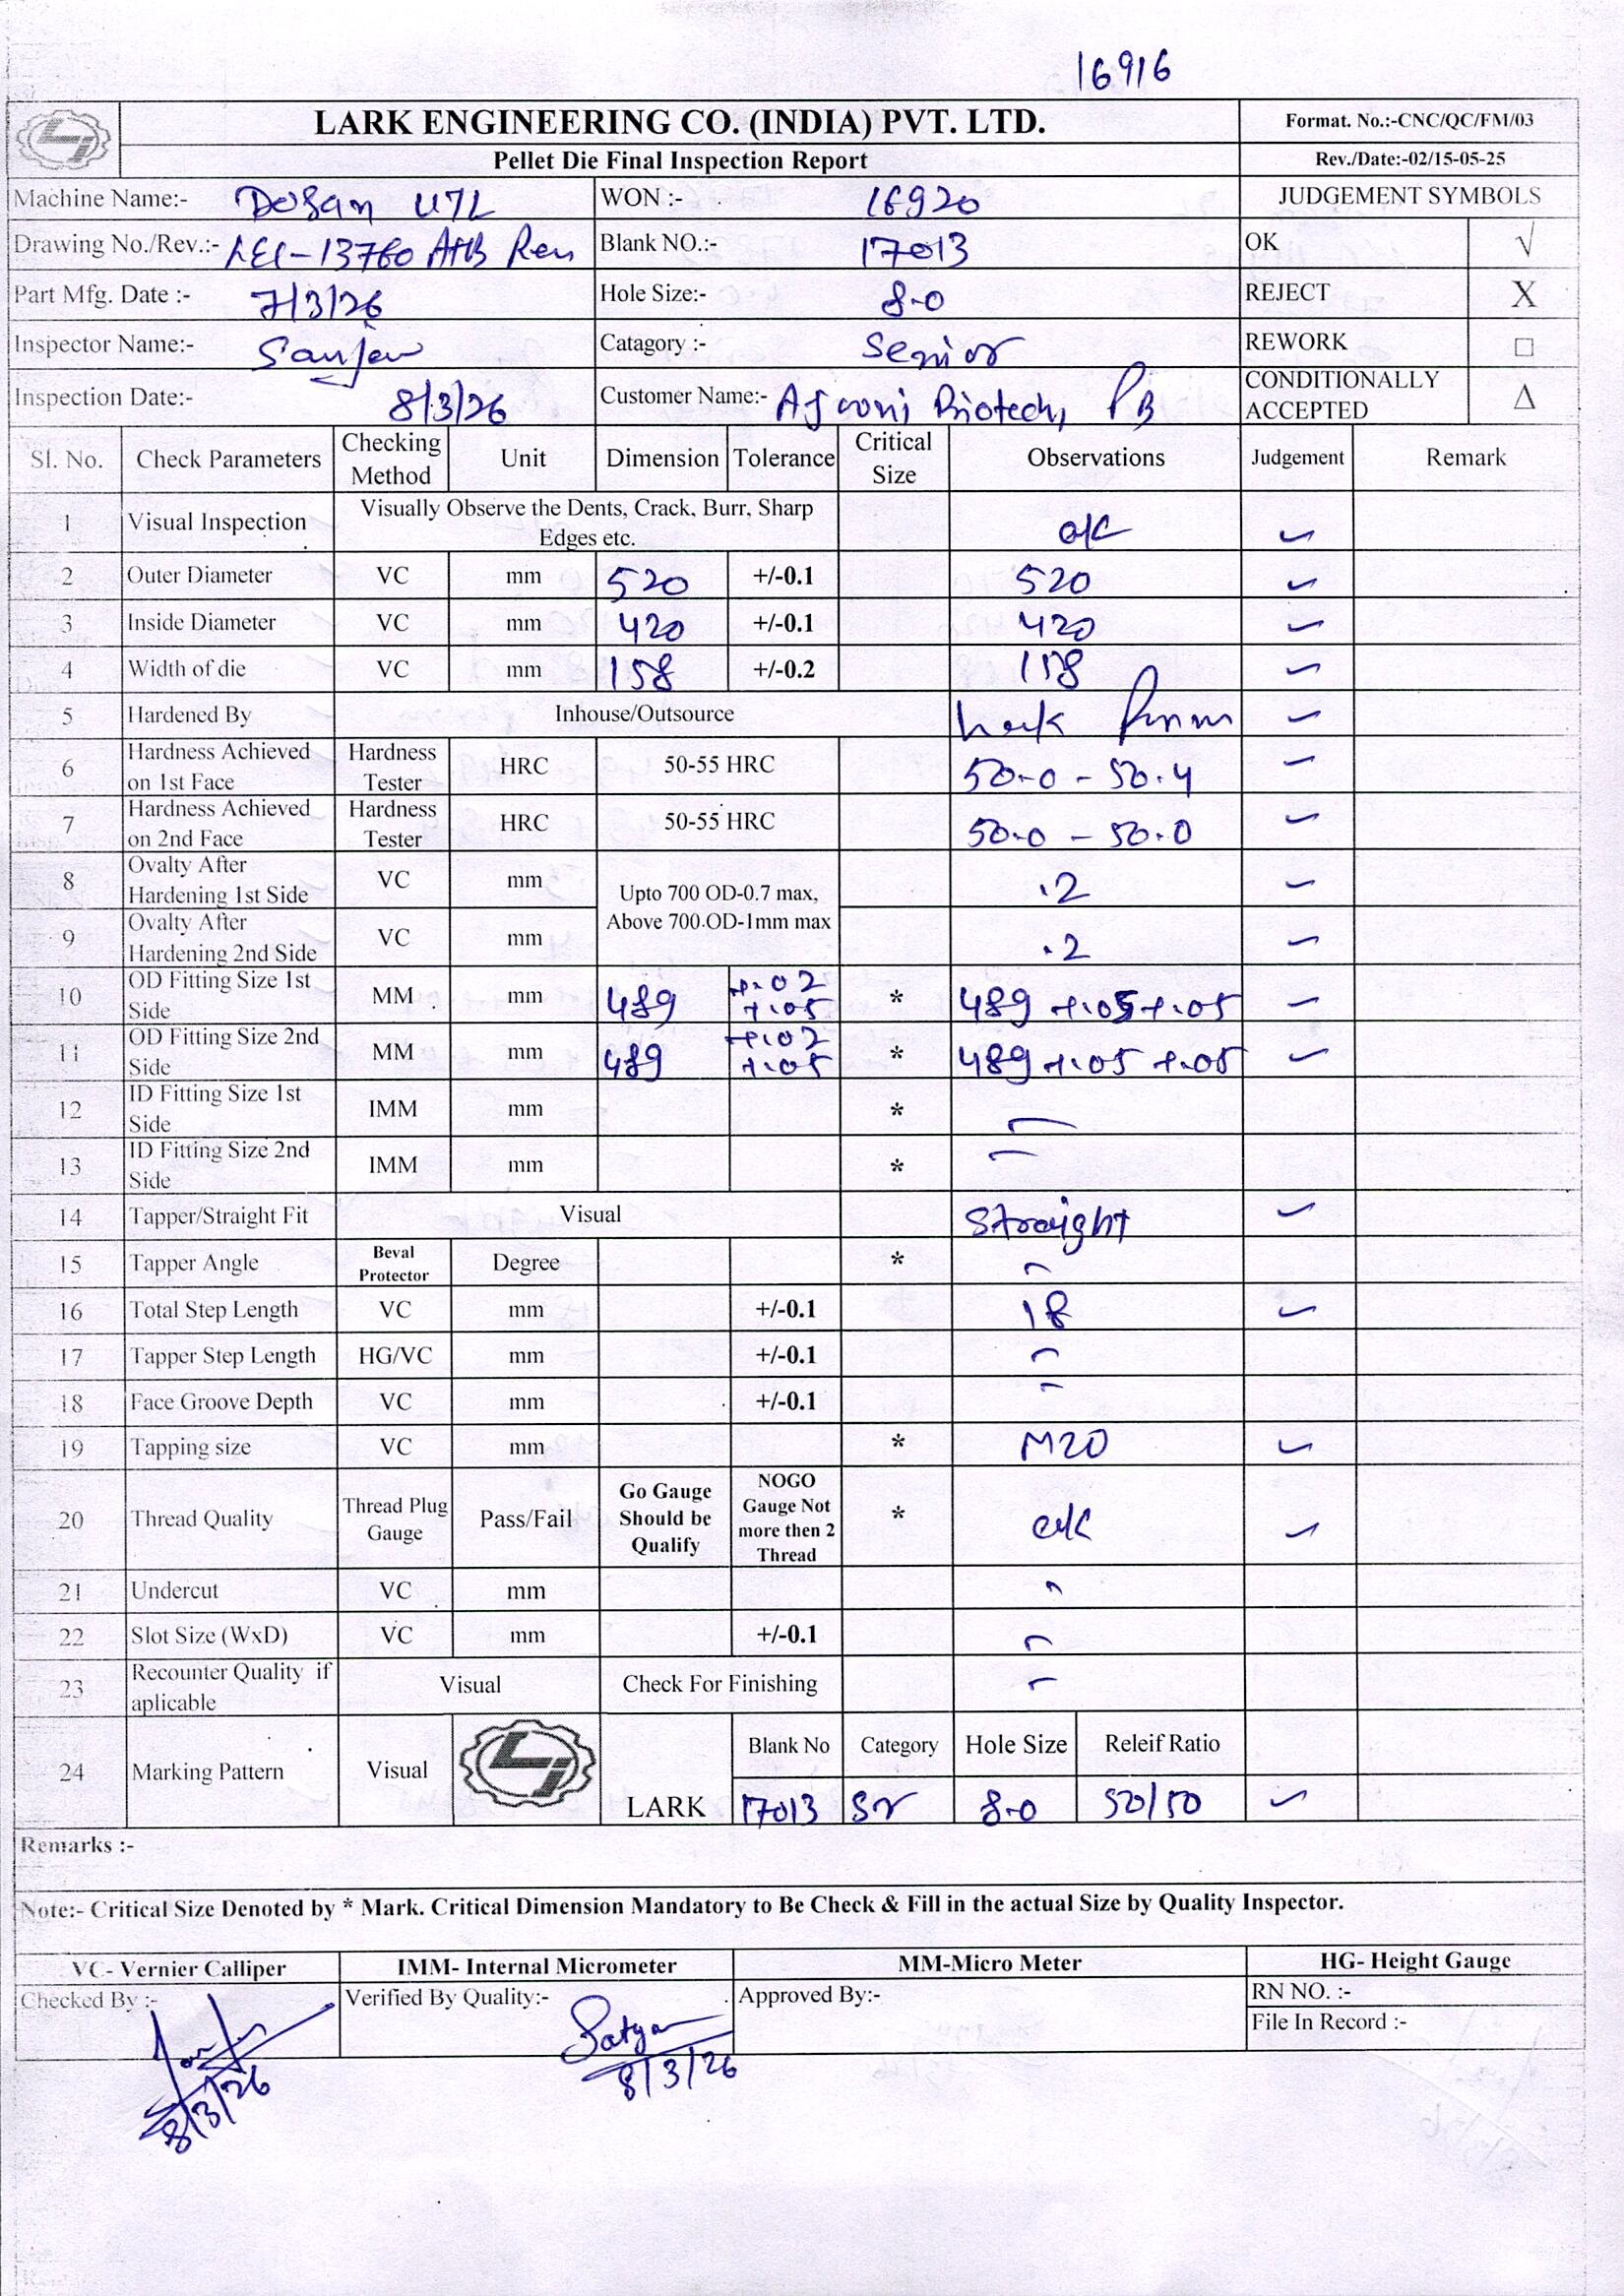 16916
LARK ENGINEERING CO. (INDIA) PVT. LTD.
Format. No.:-CNC/QC/FM/03
Pellet Die Final Inspection Report
Rev./Date:-02/15-05-25
Machine Name:- Dosan
WON :- 16920
JUDGEMENT SYMBOLS
Drawing No./Rev.:- LEC-13760
Blank NO.:- 17013
OK √
Part Mfg. Date :- 7/3/26
Hole Size:- 8.0
REJECT X
Inspector Name:- Sanjeev
Catagory :- Senior
REWORK □
Inspection Date:- 8/3/26
Customer Name:- Biotech, PB
CONDITIONALLY ACCEPTED Δ
Sl. No. Check Parameters Checking Method Unit Dimension Tolerance Critical Size Observations Judgement Remark
1 Visual Inspection Visually Observe the Dents, Crack, Burr, Sharp Edges etc. o/k ✓
2 Outer Diameter VC mm 520 +/-0.1 520 ✓
3 Inside Diameter VC mm 420 +/-0.1 420 ✓
4 Width of die VC mm 158 +/-0.2 158 ✓
5 Hardened By Inhouse/Outsource Lark ✓
6 Hardness Achieved on 1st Face Hardness Tester HRC 50-55 HRC 50.0 - 50.4 ✓
7 Hardness Achieved on 2nd Face Hardness Tester HRC 50-55 HRC 50.0 - 50.0 ✓
8 Ovalty After Hardening 1st Side VC mm Upto 700 OD-0.7 max, Above 700.OD-1mm max .2 ✓
9 Ovalty After Hardening 2nd Side VC mm .2 ✓
10 OD Fitting Size 1st Side MM mm 489 +.02 +.05 * 489 +.05 +.05 ✓
11 OD Fitting Size 2nd Side MM mm 489 +.02 +.05 * 489 +.05 +.05 ✓
12 ID Fitting Size 1st Side IMM mm * —
13 ID Fitting Size 2nd Side IMM mm * —
14 Tapper/Straight Fit Visual Straight ✓
15 Tapper Angle Beval Protector Degree * —
16 Total Step Length VC mm +/-0.1 18 ✓
17 Tapper Step Length HG/VC mm +/-0.1 —
18 Face Groove Depth VC mm +/-0.1 —
19 Tapping size VC mm * M20 ✓
20 Thread Quality Thread Plug Gauge Pass/Fail Go Gauge Should be Qualify NOGO Gauge Not more then 2 Thread * o/k ✓
21 Undercut VC mm —
22 Slot Size (WxD) VC mm +/-0.1 —
23 Recounter Quality if aplicable Visual Check For Finishing —
24 Marking Pattern Visual LARK Blank No Category Hole Size Releif Ratio
17013 Sr 8.0 50/50 ✓
Remarks :-
Note:- Critical Size Denoted by * Mark. Critical Dimension Mandatory to Be Check & Fill in the actual Size by Quality Inspector.
VC- Vernier Calliper IMM- Internal Micrometer MM-Micro Meter HG- Height Gauge
Checked By :- Verified By Quality:- Satyam Approved By:- RN NO. :-
File In Record :-
8/3/26 8/3/26